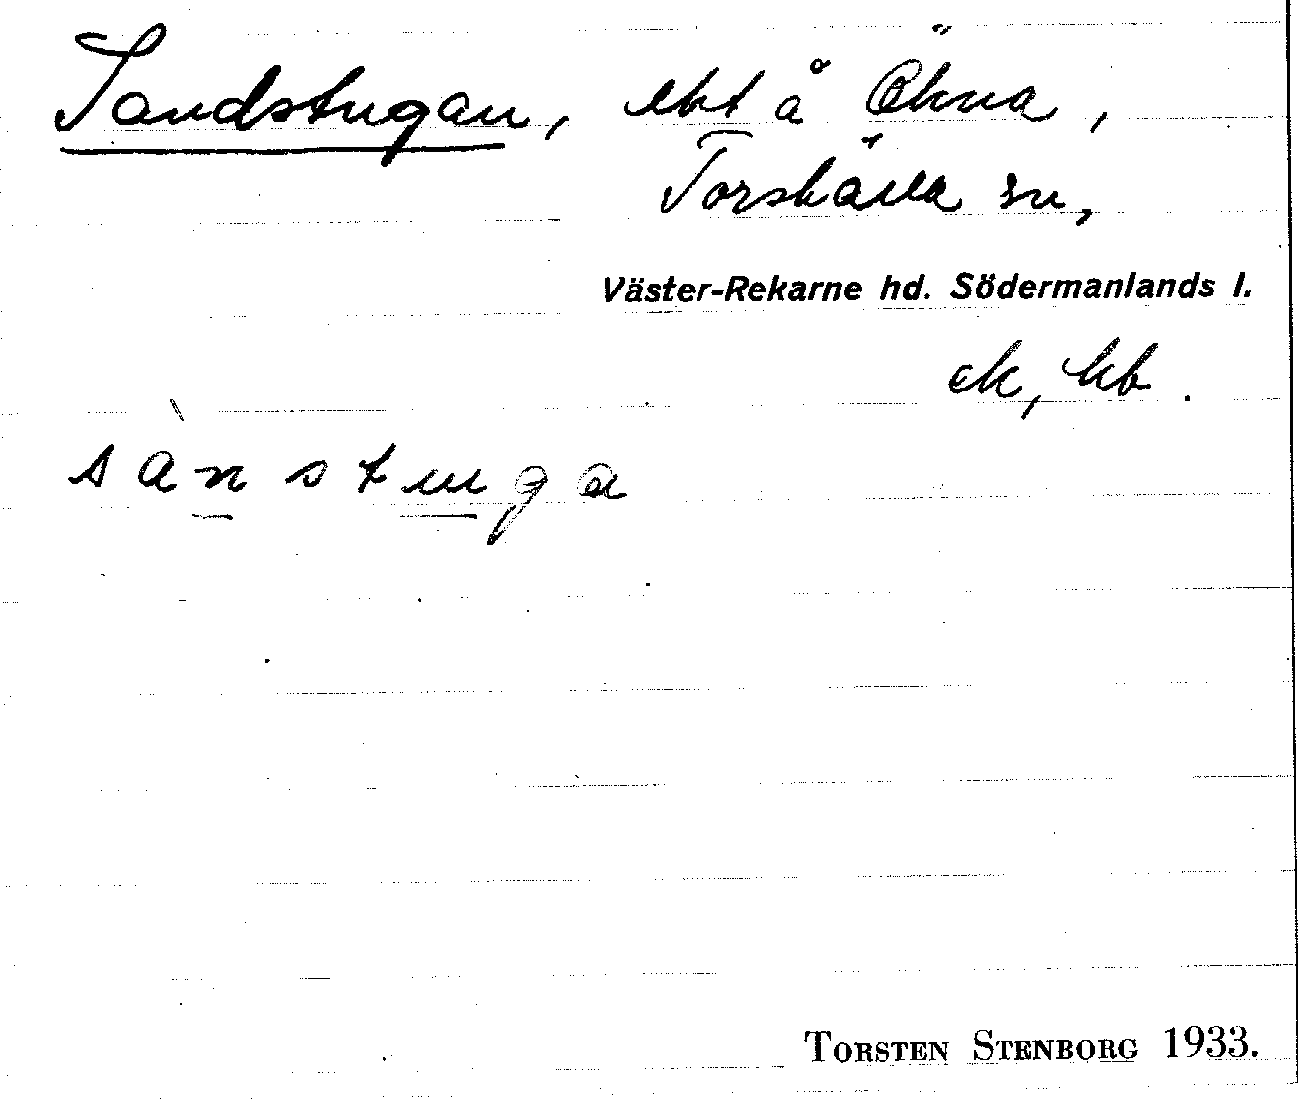 Sandstugan, ebt å Ökna,
Torshälla sn,
Väster-Rekarne hd. Södermanlands l.
ek, kb.
sànstuga
TORSTEN STENBORG 1933.